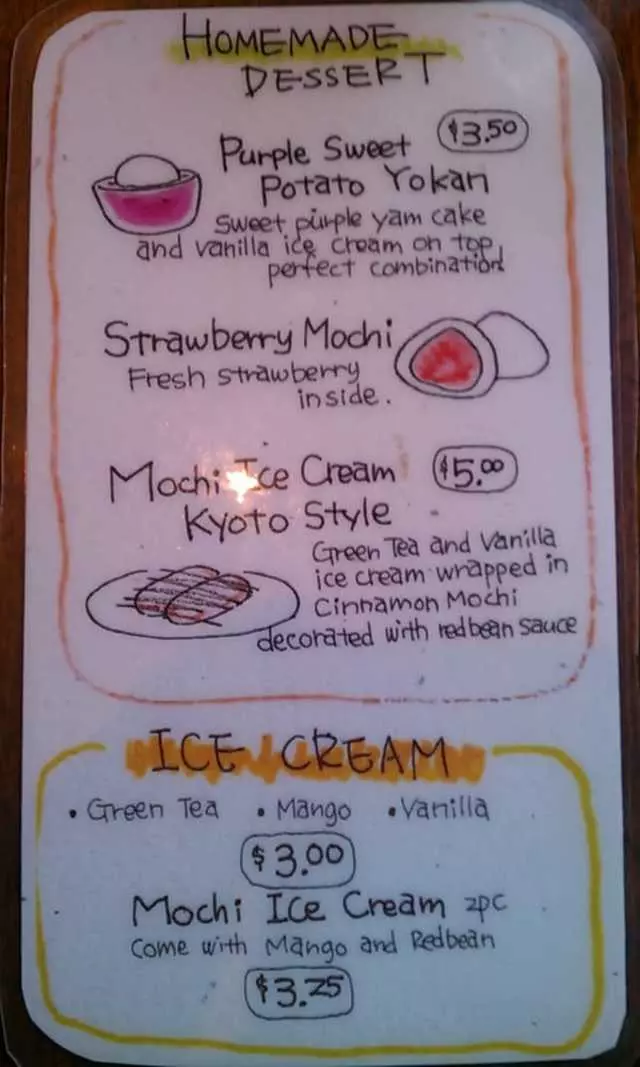 HOMEMADE
DESSERT
Purple Sweet $3.50
Potato Yokan
Sweet purple yam cake
and vanilla ice cream on top,
perfect combination
Strawberry Mochi
Fresh strawberry
inside.
Mochi Ice Cream $5.00
Kyoto Style
Green Tea and Vanilla
ice cream wrapped in
Cinnamon Mochi
decorated with redbean sauce
ICE CREAM
• Green Tea • Mango • Vanilla
$3.00
Mochi Ice Cream 2pc
Come with Mango and Redbean
$3.25